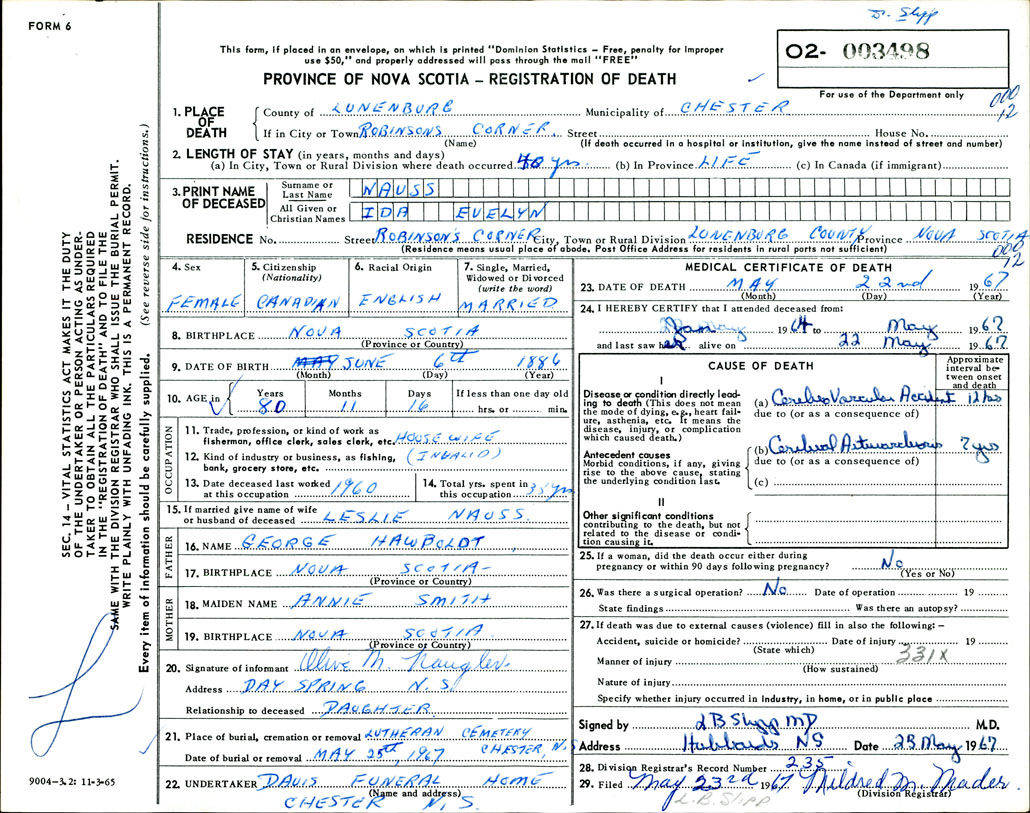 Dr. Slipp
FORM 6
This form, if placed in an envelope, on which is printed "Dominion Statistics – Free, penalty for improper
use $50," and properly addressed will pass through the mail "FREE"
O2- 003498
PROVINCE OF NOVA SCOTIA – REGISTRATION OF DEATH
For use of the Department only
000
12
1. PLACE OF DEATH
County of LUNENBURG Municipality of CHESTER
If in City or Town ROBINSONS CORNER Street House No.
(Name) (If death occurred in a hospital or institution, give the name instead of street and number)
2. LENGTH OF STAY (in years, months and days)
(a) In City, Town or Rural Division where death occurred 40 yrs (b) In Province LIFE (c) In Canada (if immigrant)
3. PRINT NAME OF DECEASED
Surname or Last Name NAUSS
All Given or Christian Names IDA EVELYN
RESIDENCE No. Street ROBINSON'S CORNER City, Town or Rural Division LUNENBURG COUNTY Province NOVA SCOTIA
(Residence means usual place of abode. Post Office Address for residents in rural parts not sufficient)
000
12
4. Sex FEMALE
5. Citizenship (Nationality) CANADIAN
6. Racial Origin ENGLISH
7. Single, Married, Widowed or Divorced (write the word) MARRIED
8. BIRTHPLACE NOVA SCOTIA
(Province or Country)
9. DATE OF BIRTH MAY JUNE 6th 1886
(Month) (Day) (Year)
10. AGE in Years 80 Months 11 Days 16 If less than one day old hrs. or min.
OCCUPATION
11. Trade, profession, or kind of work as
fisherman, office clerk, sales clerk, etc. HOUSE WIFE
12. Kind of industry or business, as fishing, (INVALID)
bank, grocery store, etc.
13. Date deceased last worked at this occupation 1960
14. Total yrs. spent in this occupation 35 yrs
15. If married give name of wife
or husband of deceased LESLIE NAUSS
FATHER
16. NAME GEORGE HAWBOLDT
17. BIRTHPLACE NOVA SCOTIA
(Province or Country)
MOTHER
18. MAIDEN NAME ANNIE SMITH
19. BIRTHPLACE NOVA SCOTIA
(Province or Country)
20. Signature of informant Olive M. Naugler
Address DAY SPRING N.S.
Relationship to deceased DAUGHTER
21. Place of burial, cremation or removal LUTHERAN CEMETERY
CHESTER, N.S
Date of burial or removal MAY 25th, 1967
22. UNDERTAKER DAVIS FUNERAL HOME
(Name and address)
CHESTER N.S.
MEDICAL CERTIFICATE OF DEATH
23. DATE OF DEATH MAY 22nd 1967
(Month) (Day) (Year)
24. I HEREBY CERTIFY that I attended deceased from:
January 1964 to May 1967
and last saw her alive on 22 May 1967.
CAUSE OF DEATH
Approximate interval between onset and death
I
Disease or condition directly leading to death (This does not mean
the mode of dying, e.g., heart failure, asthenia, etc. It means the
disease, injury, or complication
which caused death.)
(a) Cerebro Vascular Accident 12 hrs
due to (or as a consequence of)
Antecedent causes
Morbid conditions, if any, giving
rise to the above cause, stating
the underlying condition last.
(b) Cerebral Arteriosclerosis ? yrs
due to (or as a consequence of)
(c)
II
Other significant conditions
contributing to the death, but not
related to the disease or condition causing it.
25. If a woman, did the death occur either during
pregnancy or within 90 days following pregnancy? No
(Yes or No)
26. Was there a surgical operation? No Date of operation 19
State findings Was there an autopsy?
27. If death was due to external causes (violence) fill in also the following: –
Accident, suicide or homicide? Date of injury 19
(State which)
331X
Manner of injury
(How sustained)
Nature of injury
Specify whether injury occurred in industry, in home, or in public place
Signed by LB Slipp MD M.D.
Address Hubbards NS Date 23 May 1967
28. Division Registrar's Record Number 235
29. Filed May 23rd 1967 Mildred M. Meader
(Division Registrar)
L.B. Slipp
SEC. 14 – VITAL STATISTICS ACT MAKES IT THE DUTY
OF THE UNDERTAKER OR PERSON ACTING AS UNDER-
TAKER TO OBTAIN ALL THE PARTICULARS REQUIRED
IN THE "REGISTRATION OF DEATH" AND TO FILE THE
SAME WITH THE DIVISION REGISTRAR WHO SHALL ISSUE THE BURIAL PERMIT.
WRITE PLAINLY WITH UNFADING INK. THIS IS A PERMANENT RECORD.
Every item of information should be carefully supplied. (See reverse side for instructions.)
9004-3.2: 11-3-65